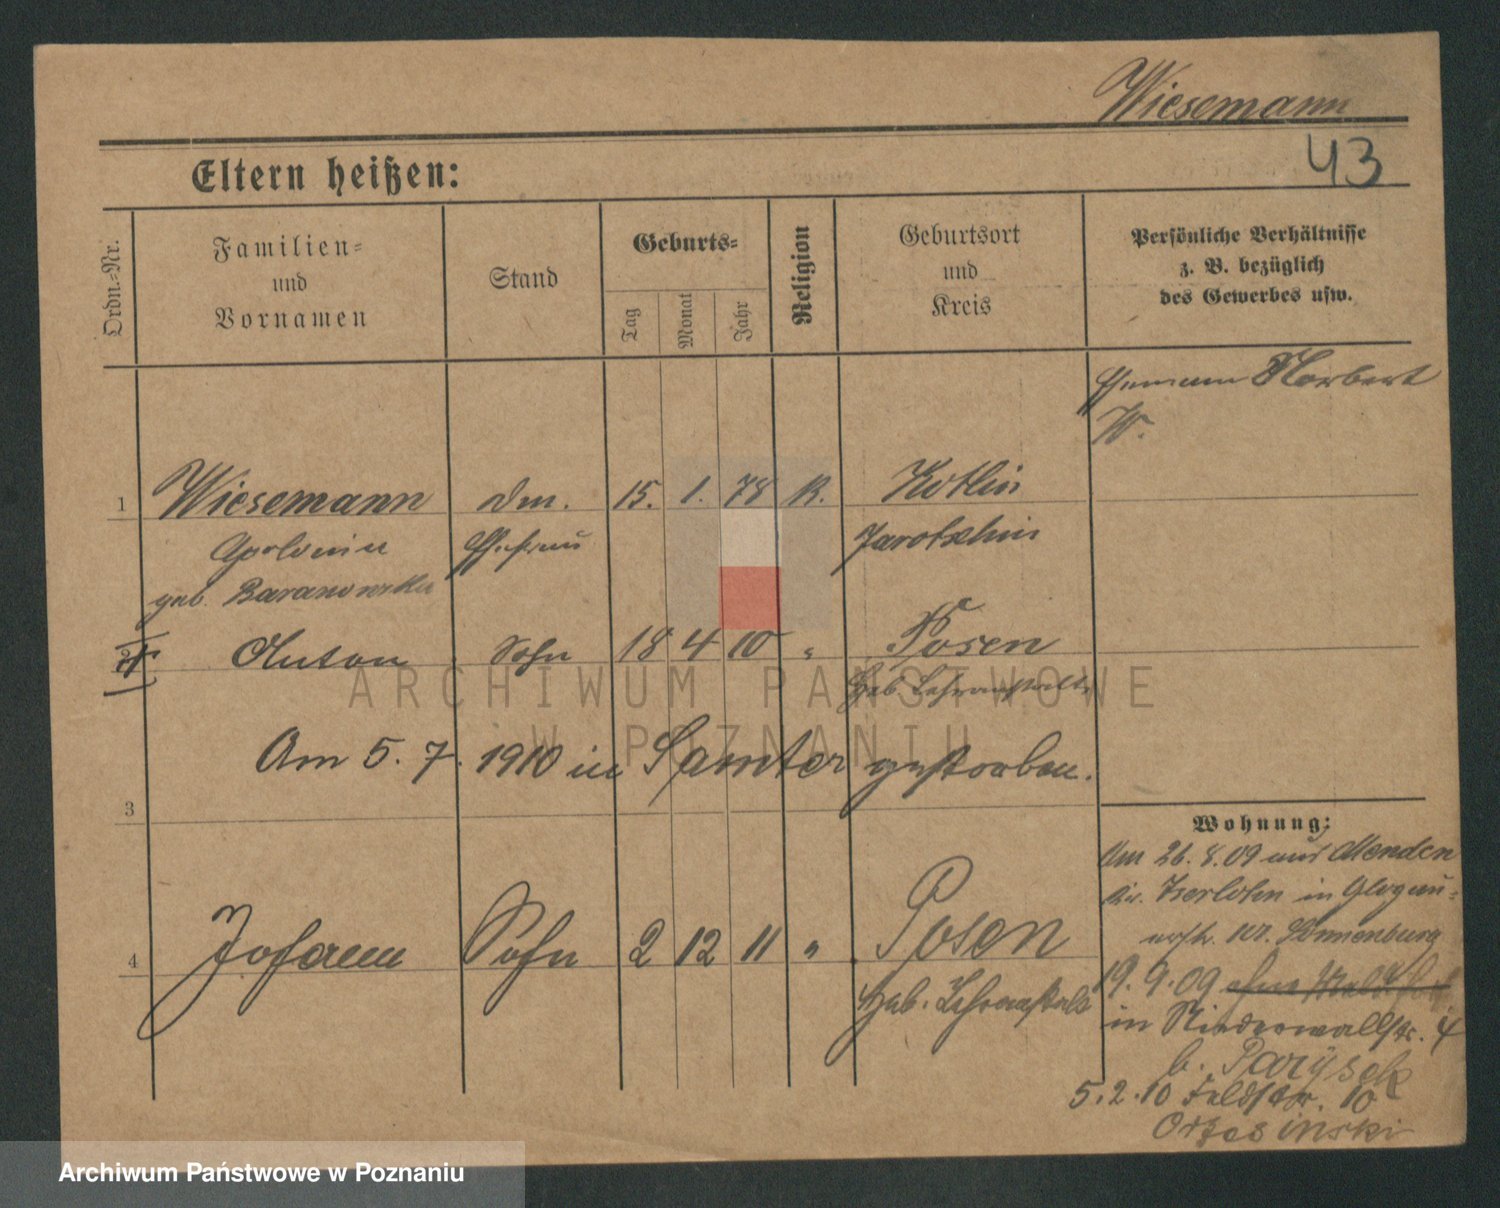 Wiesemann
43
Eltern heißen:
Ordn.-Nr.
Familien-
und
Vornamen
Stand
Geburts-
Tag
Monat
Jahr
Religion
Geburtsort
und
Kreis
Persönliche Verhältnisse
z. B. bezüglich
des Gewerbes usw.
Norbert
W.
1 Wiesemann 15. 1. 78 K. Kotlin
Apolonia Ehefrau Jarotschin
geb. Baranowska
Anton Sohn 18 4 10 " Posen
Heb. Lehranstalt
Am 5. 7. 1910 in Samter gestorben.
3
4 Johann Sohn 2 12 11 " Posen
Heb. Lehranstalt
Wohnung:
Am 26. 8. 09 aus Menden
Iserlohn in Glogau-
Sonnenburg
19. 9. 09
in Niederwallstr. 4
b. Parysek
5. 2. 10 Feldstr. 10
ARCHIWUM PAŃSTWOWE
W POZNANIU
Archiwum Państwowe w Poznaniu